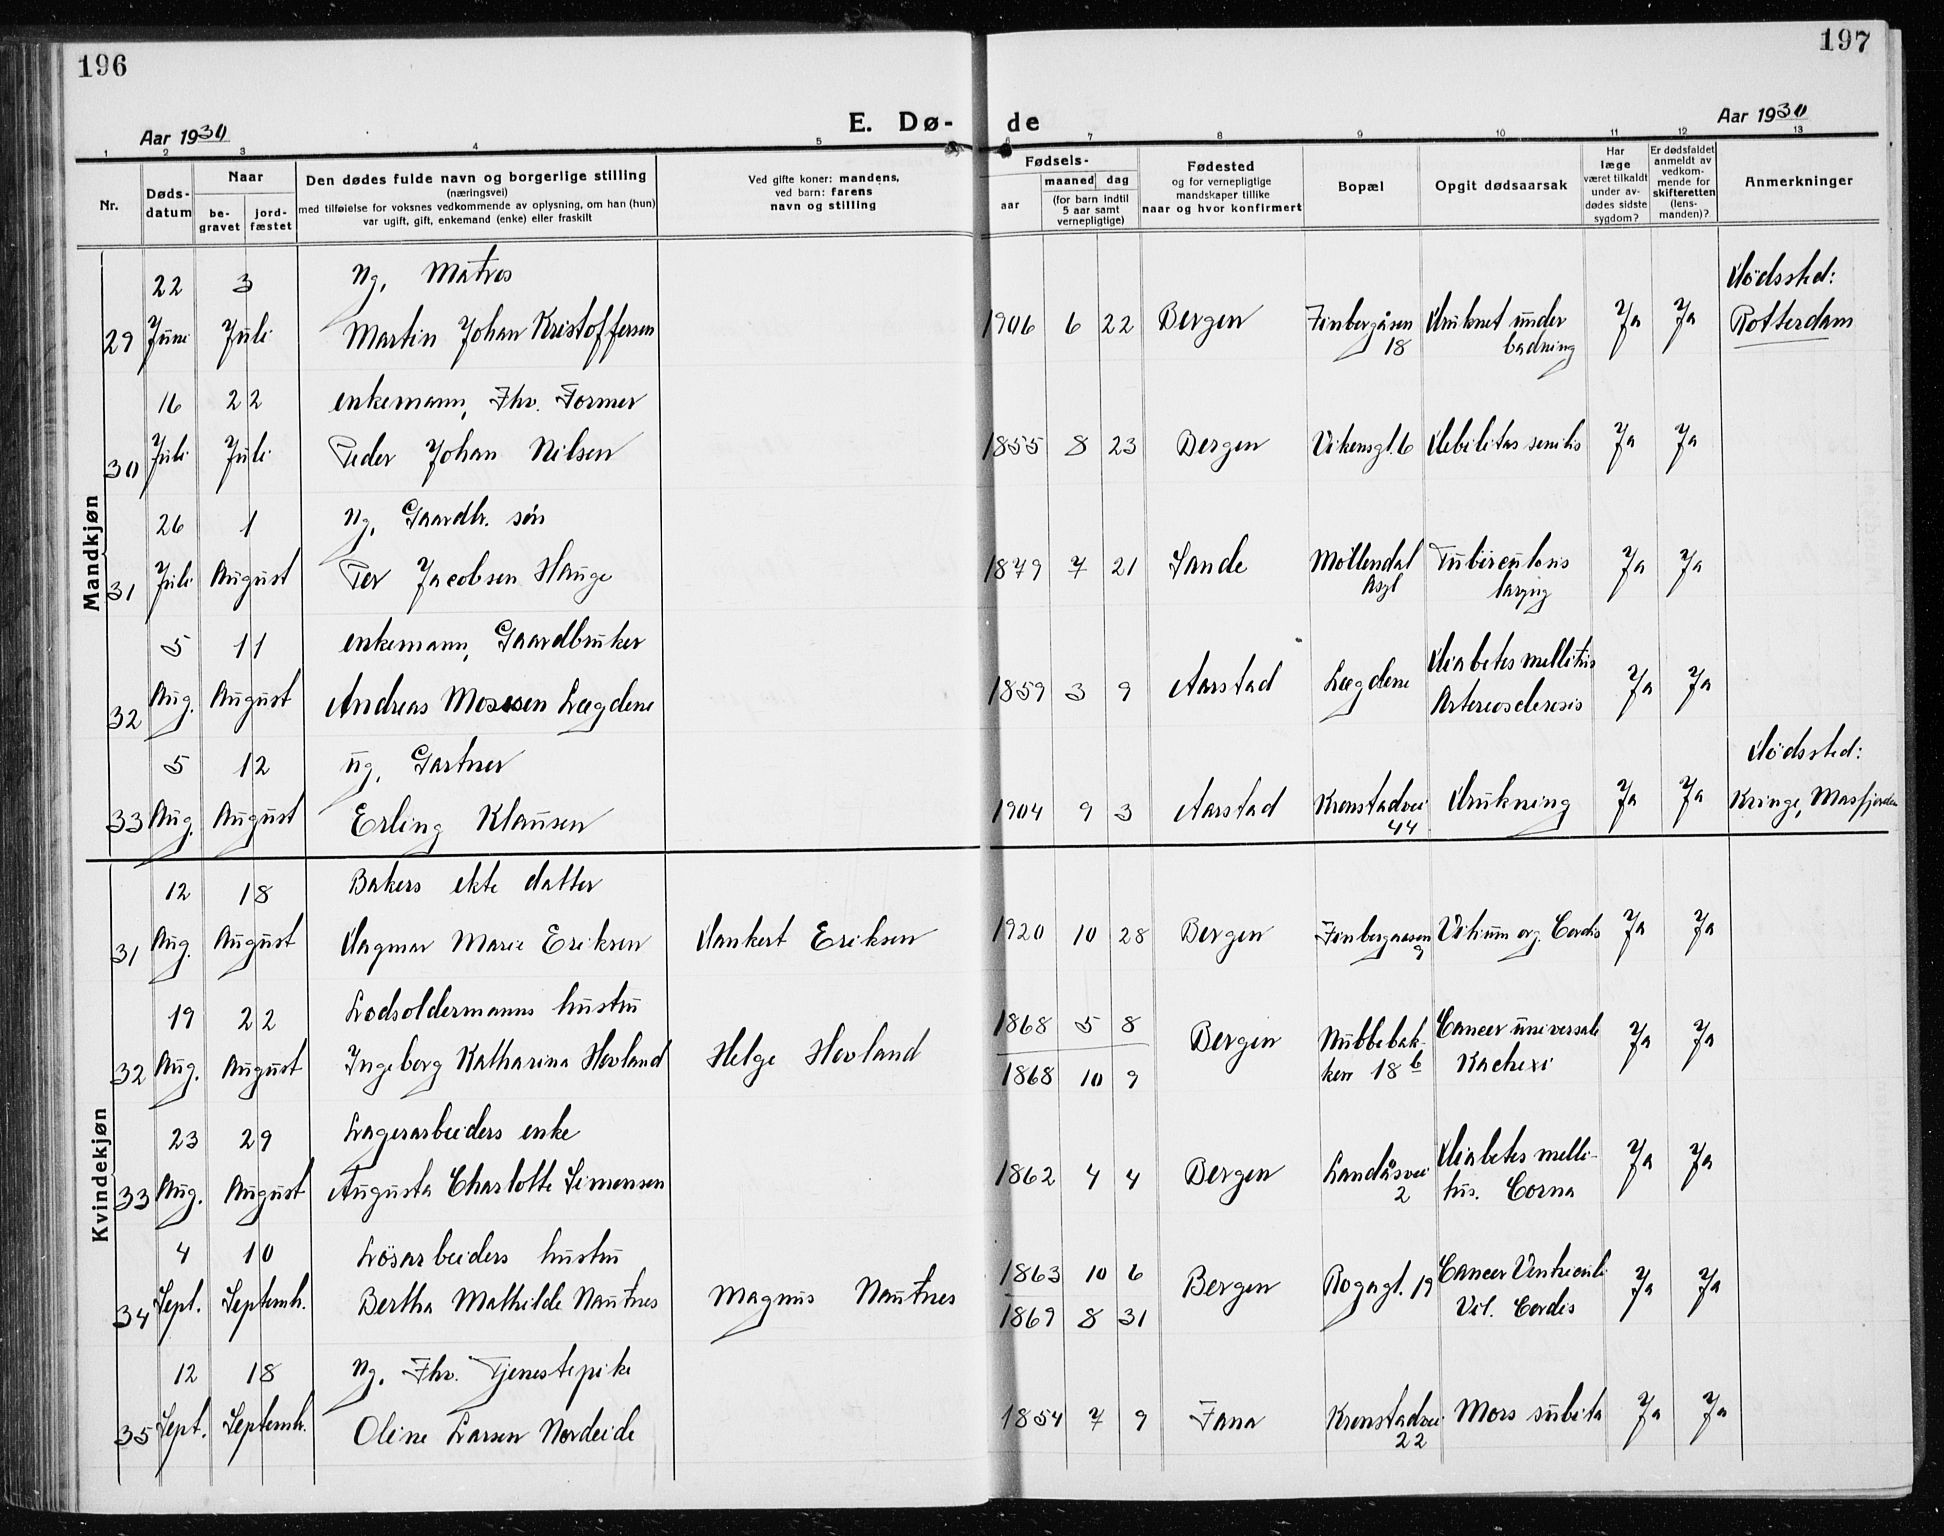 196
197
Aar 1930
E. Dø- de
Aar 1930
1 2 3 4 5 6 7 8 9 10 11 12 13
Nr.
Døds-
datum
Naar
be-
gravet
jord-
fæstet
Den dødes fulde navn og borgerlige stilling
(næringsvei)
med tilføielse for voksnes vedkommende av oplysning, om han (hun)
var ugift, gift, enkemand (enke) eller fraskilt
Ved gifte koner: mandens,
ved barn: farens
navn og stilling
Fødsels-
aar
maaned dag
(for barn indtil
5 aar samt
vernepligtige)
Fødested
og for vernepligtige
mandskaper tillike
naar og hvor konfirmert
Bopæl
Opgit dødsaarsak
Har
læge
været tilkaldt
under av-
dødes sidste
sygdom?
Er dødsfaldet
anmeldt av
vedkom-
mende for
skifteretten
(lens-
manden)?
Anmerkninger
Mandkjøn
22 3 Ug, Matros Dödssted:
29 Juni Juli Martin Johan Kristoffersen 1906 6 22 Bergen Finbergåsen Druknet under Ja Ja Rotterdam
18 badning
16 22 enkemann, Fhv. Former
30 Juli Juli Peder Johan Nilsen 1855 8 23 Bergen Vikensgt. 6 Debilitas senilis Ja Ja
26 1 Ug, Gaardbr. sön
31 Juli August Per Jacobsen Hauge 1879 7 21 Sande Möllendal Tuberculosis Ja Ja
Asyl laryng
5 11 enkemann, Gaardbruker Diabetes mellitus
32 Aug. August Andreas Mossen Lægdene 1859 3 9 Aarstad Lægdene Arteriosclerosis Ja Ja
5 12 ug, Gartner Dödssted:
33 Aug. August Erling Klausen 1904 9 3 Aarstad Kronstadvei Drukning Ja Ja Kringe, Masfjorden
44
Kvindekjøn
12 18 Bakers ekte datter
31 Aug. August Dagmar Marie Eriksen Dankert Eriksen 1920 10 28 Bergen Finbergaasen Vitium org. Cordis Ja Ja
9
19 22 Lodsoldermanns hustru 1868 5 8 Cancer universale
32 Aug. August Ingeborg Katharina Hovland Helge Hovland Bergen Nubbebak- Ja Ja
1868 10 9 ken 18 b Kachexi
23 29 Lagerarbeiders enke Diabetes melli-
33 Aug. August Augusta Charlotte Simonsen 1862 4 4 Bergen Landåsvei Ja Ja
2 tus. Coma
4 10 Lösarbeiders hustru 1863 10 6 Cancer Ventriculi
34 Sept. Septemb. Bertha Mathilde Nautnes Magnus Nautnes Bergen Rogagt. 19 Ja Ja
1869 8 31 Vit. Cordis
12 18 Ug. Fhv. Tjenestepike
35 Sept. Septemb. Oline Larsen Nordeide 1854 7 9 Fana Kronstadvei Mors subita Ja Ja
22